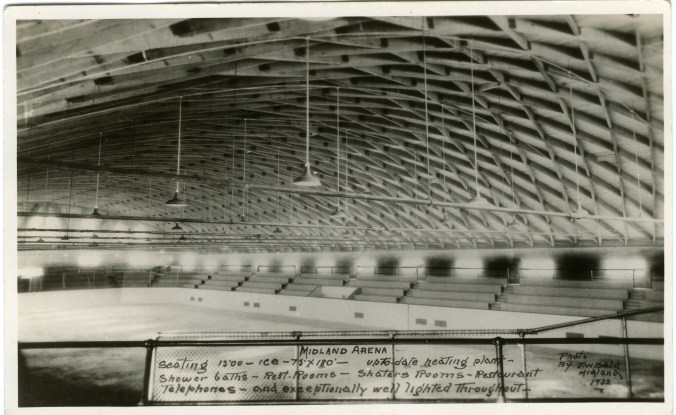 MIDLAND ARENA
Seating 1500 - ice - 75'X180' - upto-date heating plant -
Shower baths - Rest-Rooms - Skaters Rooms - Restaurant
Telephones - and exceptionally well lighted throughout -
Photo
By J.W. Bald
Midland
1932